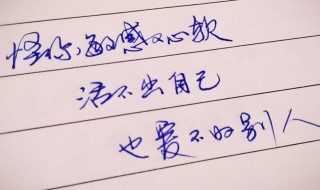 怪你敏感又心软
活不出自己
也爱不别人